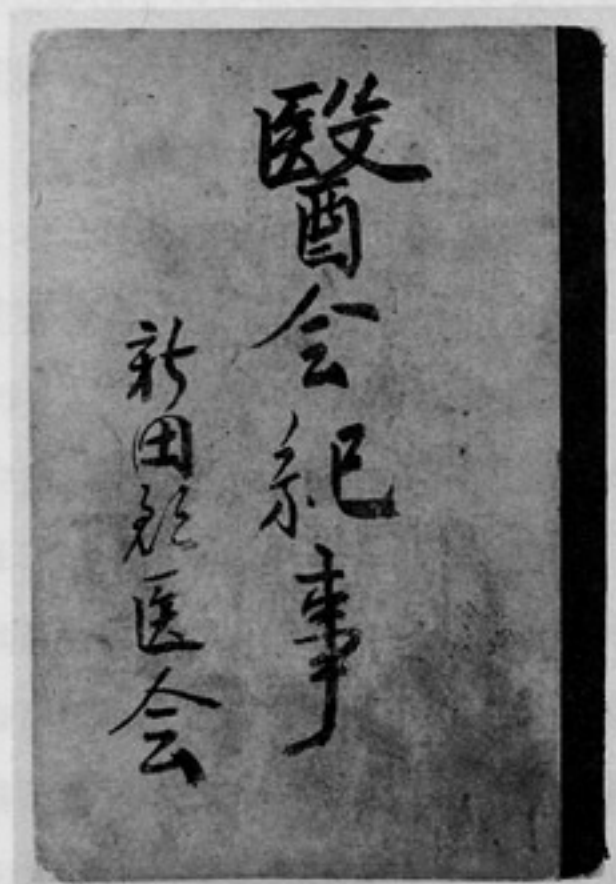 醫会紀事
新田郡医会